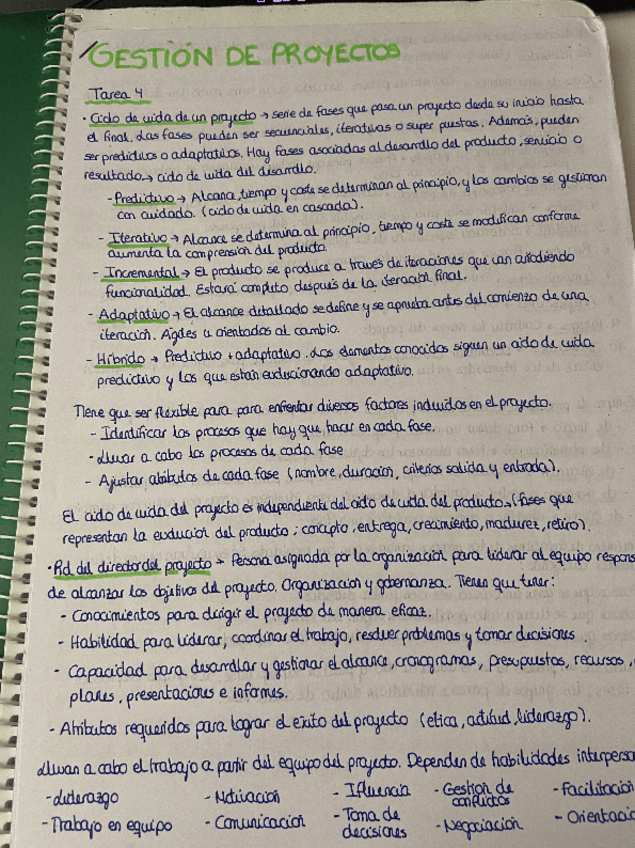 GESTIÓN DE PROYECTOS
Tarea 4
· Ciclo de vida de un proyecto → serie de fases que pasa un proyecto desde su inicio hasta
el final. Las fases pueden ser secuenciales, iterativas o super puestas. Además, pueden
ser predictivos o adaptativos. Hay fases asociadas al desarrollo del producto, servicio o
resultado → ciclo de vida del desarrollo.
- Predictivo → Alcance, tiempo y coste se determinan al principio, y los cambios se gestionan
con cuidado. (ciclo de vida en cascada).
- Iterativo → Alcance se determina al principio, tiempo y coste se modifican conforme
aumenta la comprensión del producto.
- Incremental → El producto se produce a través de iteraciones que van añadiendo
funcionalidad. Estará completo después de la iteración final.
- Adaptativo → El alcance detallado se define y se aprueba antes del comienzo de una
iteración. Ágiles u orientados al cambio.
- Híbrido → Predictivo + adaptativo. Los elementos conocidos siguen un ciclo de vida
predictivo y los que están evolucionando adaptativo.
Tiene que ser flexible para para enfrentar diversos factores incluidos en el proyecto.
- Identificar los procesos que hay que hacer en cada fase.
- Llevar a cabo los procesos de cada fase
- Ajustar atributos de cada fase (nombre, duración, criterios salida y entrada).
El ciclo de vida del proyecto es independiente del ciclo de vida del producto. (fases que
representan la evolución del producto; concepto, entrega, crecimiento, madurez, retiro).
· Rol del director del proyecto → Persona asignada por la organización para liderar al equipo respons
de alcanzar los objetivos del proyecto. Organización y gobernanza. Tienen que tener:
- Conocimientos para dirigir el proyecto de manera eficaz.
- Habilidad para liderar, coordinar el trabajo, resolver problemas y tomar decisiones.
- Capacidad para desarrollar y gestionar el alcance, cronogramas, presupuestos, recursos,
planes, presentaciones e informes.
- Atributos requeridos para lograr el éxito del proyecto (ética, actitud, liderazgo).
Llevan a cabo el trabajo a partir del equipo del proyecto. Dependen de habilidades interperso
- Liderazgo - Motivación - Ifluencia - Gestión de conflictos - Facilitación
- Trabajo en equipo - Comunicación - Toma de decisiones - Negociación - Orientació